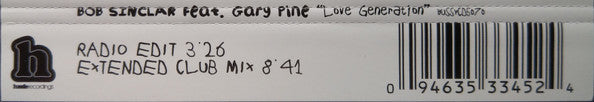 BOB SINCLAR Feat. Gary Pine "Love Generation"
RADIO EDIT 3'26
EXTENDED CLUB MIX 8'41
h
recordings
0 94635 33452 4